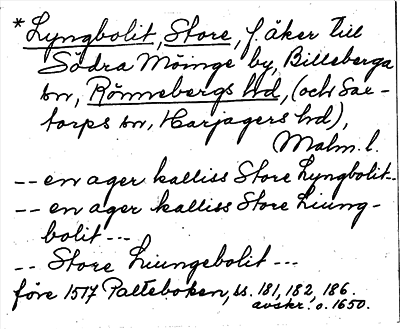 * Lyngbolit, Store, f. åker till
Södra Möinge by, Billeberga
sn, Rönnebergs hd, (och Sae-
torps sn, Harjagers hd),
Malm. l.
-- en ager kalliss Store Lyngbolit--
-- en ager kalliss Store Liung-
bolit ---
-- Store Liungebolit ---
före 1517 Palteboken, ss. 181, 182, 186.
avskr. o. 1650.